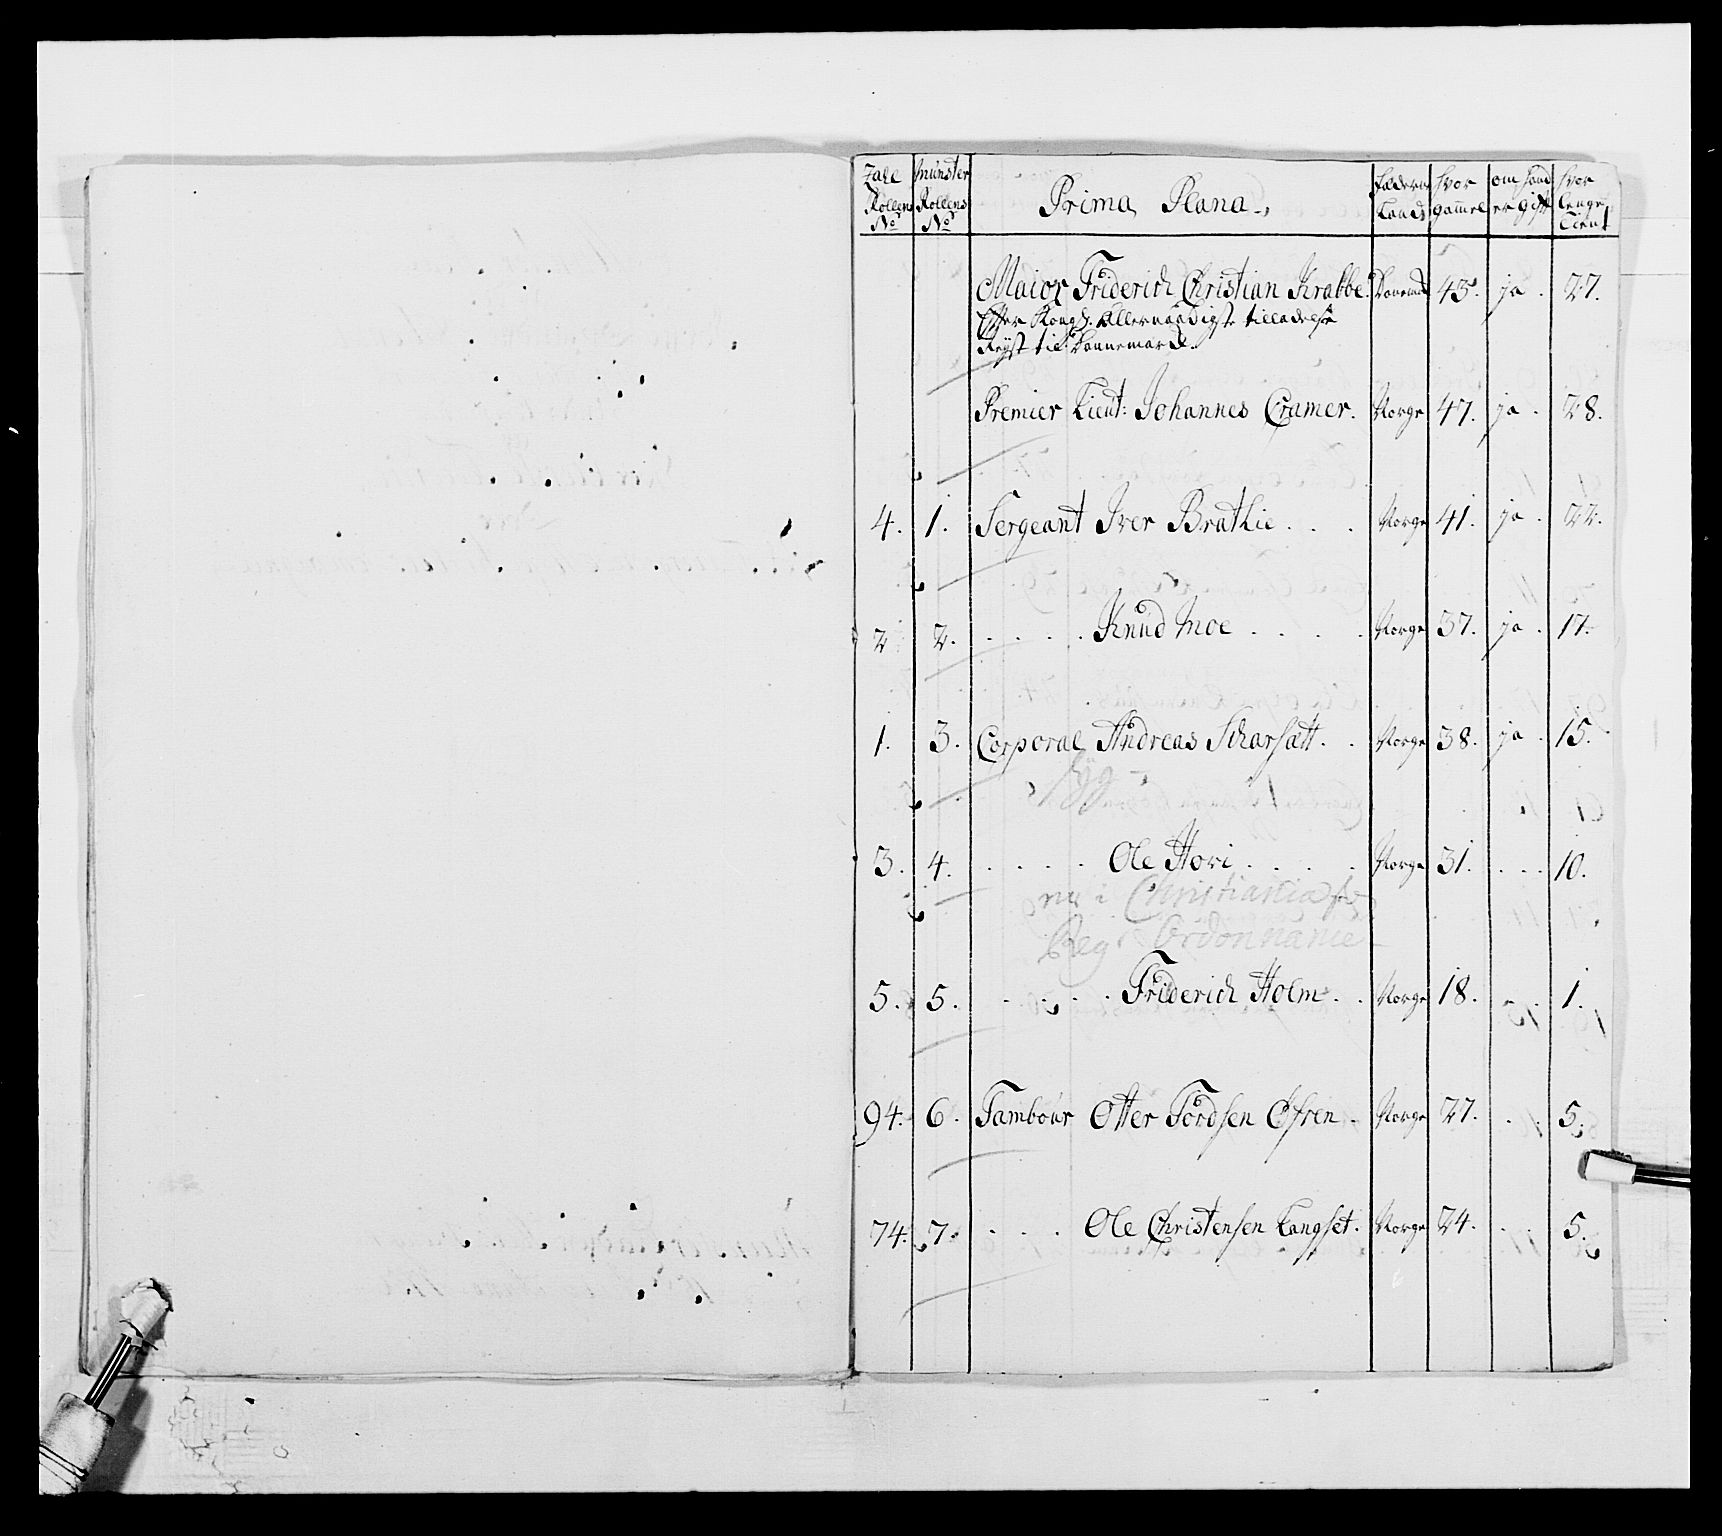 Zahl Rollens No | Munster Rollens No | Prima Plana | Fædern Land | hvor gammel | om hand er gift | hvor lenge tient
Maior Friderich Christian Krabbe. | Dannemd | 43. | ja. | 27.
Efter Kongl. Allernaadigste tilladelse
Reyst til Dannemarck.
Premier Lieut: Johannes Cramer. | Norge | 47. | ja. | 28.
4. | 1. | Sergeant Iver Brathie . . . | Norge | 41. | ja. | 22.
2 | 2. | . . . . Knud Moe . . . . | Norge | 37. | ja. | 17.
1. | 3. | Corporal Andreas Scharsætt. . | Norge | 38. | ja. | 15.
Syg
3. | 4. | . . . . Ole Hovi . . . . | Norge | 31. | . . . | 10.
nu i Christiania
Ordonnance
5. | 5. | . . . . Friderich Holm . . | Norge | 18. | . . | 1.
94. | 6. | Tambour Otter Tordsen Øfren. | Norge | 27. | . . | 5.
74. | 7. | . . . Ole Christensen Langset. | Norge | 24. | . . | 5.